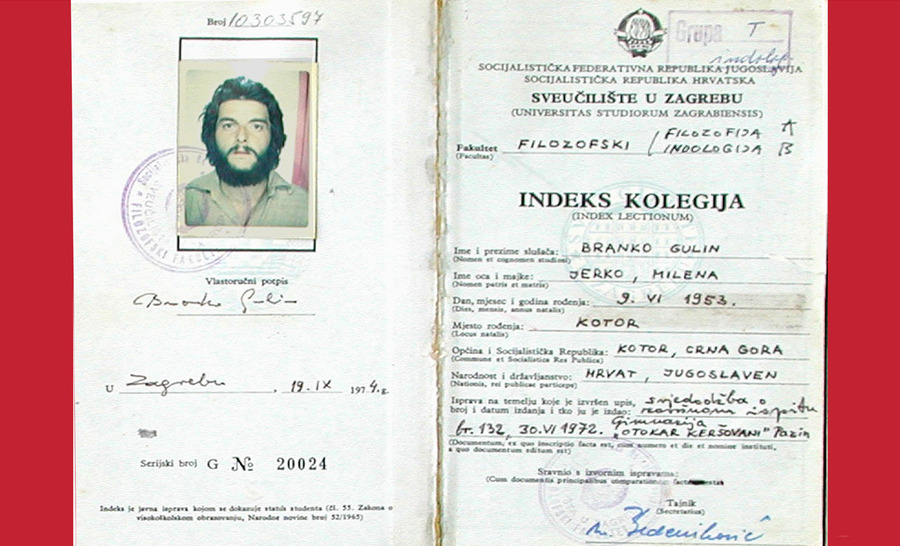 Broj 10303597
Vlastoručni potpis
Branko Gulin
U Zagrebu, 19. IX 1974. g.
Serijski broj G № 20024
Indeks je javna isprava kojom se dokazuje status studenta (čl. 55. Zakona o
visokoškolskom obrazovanju, Narodne novine broj 52/1965)
Grupa T
indolog
SOCIJALISTIČKA FEDERATIVNA REPUBLIKA JUGOSLAVIJA
SOCIJALISTIČKA REPUBLIKA HRVATSKA
SVEUČILIŠTE U ZAGREBU
(UNIVERSITAS STUDIORUM ZAGRABIENSIS)
FILOZOFIJA A
Fakultet FILOZOFSKI
(Facultas) INDOLOGIJA B
INDEKS KOLEGIJA
(INDEX LECTIONUM)
Ime i prezime slušača: BRANKO GULIN
(Nomen et cognomen studiosi)
Ime oca i majke: JERKO, MILENA
(Nomen patris et matris)
Dan, mjesec i godina rođenja: 9. VI 1953.
(Dies, mensis, annus natalis)
Mjesto rođenja: KOTOR
(Locus natalis)
Općina i Socijalistička Republika: KOTOR, CRNA GORA
(Commune et Socialistica Res Publica)
Narodnost i državljanstvo: HRVAT, JUGOSLAVEN
(Nationis, rei publicae particeps)
Isprava na temelju koje je izvršen upis, svjedodžba o
broj i datum izdanja i tko ju je izdao: završnom ispitu
br. 132, 30. VI 1972. Gimnazija "OTOKAR KERŠOVANI" Pazin
(Documentum, ex quo inscriptio facta est, cum numero et die et nomine instituti,
a quo documentum editum est)
Sravnio s izvornim ispravama:
(Cum documentis principalibus comparationem
Tajnik
(Secretarius)